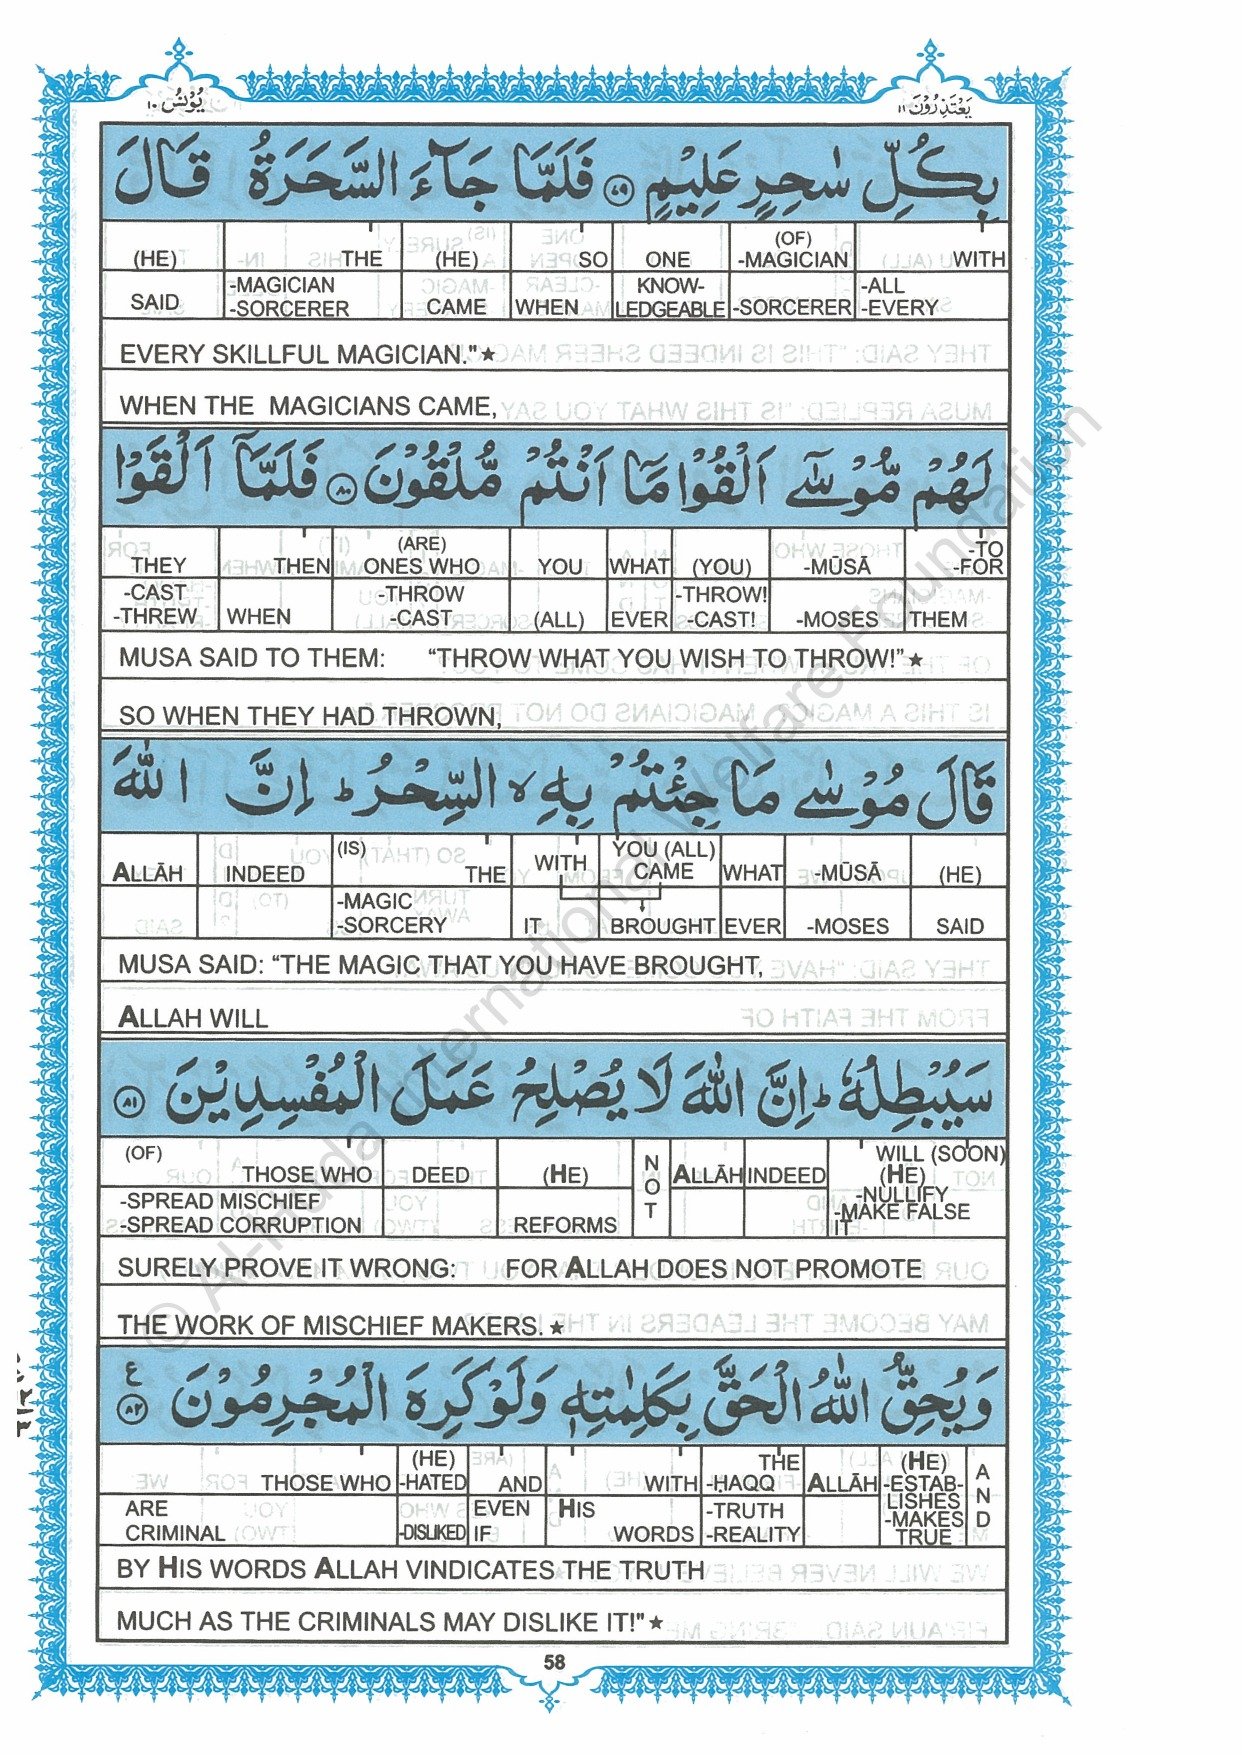 يُوْنُسُ ١٠
يَعْتَذِرُوْنَ ١١
بِكُلِّ سٰحِرٍ عَلِيْمٍ ﴿٧٩﴾ فَلَمَّا جَآءَ السَّحَرَةُ قَالَ
(HE) THE (HE) SO ONE (OF) -MAGICIAN WITH
SAID -MAGICIAN -SORCERER CAME WHEN KNOW-LEDGEABLE -SORCERER -ALL -EVERY
EVERY SKILLFUL MAGICIAN."★
WHEN THE MAGICIANS CAME,
لَهُمْ مُّوْسٰٓى اَلْقُوْا مَآ اَنْتُمْ مُّلْقُوْنَ ﴿٨٠﴾ فَلَمَّآ اَلْقَوْا
THEY THEN (ARE) ONES WHO YOU WHAT (YOU) -MŪSĀ -TO -FOR
-CAST -THREW WHEN -THROW -CAST (ALL) EVER -THROW! -CAST! -MOSES THEM
MUSA SAID TO THEM: “THROW WHAT YOU WISH TO THROW!”★
SO WHEN THEY HAD THROWN,
قَالَ مُوْسٰى مَا جِئْتُمْ بِهِ ۙ السِّحْرُ ؕ اِنَّ اللّٰهَ
ALLĀH INDEED (IS) THE WITH YOU (ALL) CAME WHAT -MŪSĀ (HE)
-MAGIC -SORCERY IT BROUGHT EVER -MOSES SAID
MUSA SAID: “THE MAGIC THAT YOU HAVE BROUGHT,
ALLAH WILL
سَيُبْطِلُهٗ ؕ اِنَّ اللّٰهَ لَا يُصْلِحُ عَمَلَ الْمُفْسِدِيْنَ ﴿٨١﴾
(OF) THOSE WHO DEED (HE) NOT ALLĀH INDEED WILL (SOON) (HE)
-SPREAD MISCHIEF -SPREAD CORRUPTION REFORMS -NULLIFY -MAKE FALSE IT
SURELY PROVE IT WRONG: FOR ALLAH DOES NOT PROMOTE
THE WORK OF MISCHIEF MAKERS.★
وَيُحِقُّ اللّٰهُ الْحَقَّ بِكَلِمٰتِهٖ وَلَوْ كَرِهَ الْمُجْرِمُوْنَ ﴿٨٢﴾ ع
THOSE WHO (HE) -HATED AND WITH THE -ḤAQQ ALLĀH (HE) -ESTAB-LISHES AND
ARE CRIMINAL -DISLIKED EVEN IF HIS WORDS -TRUTH -REALITY -MAKES TRUE
BY HIS WORDS ALLAH VINDICATES THE TRUTH
MUCH AS THE CRIMINALS MAY DISLIKE IT!"★
58
© Al-Huda International Welfare Foundation